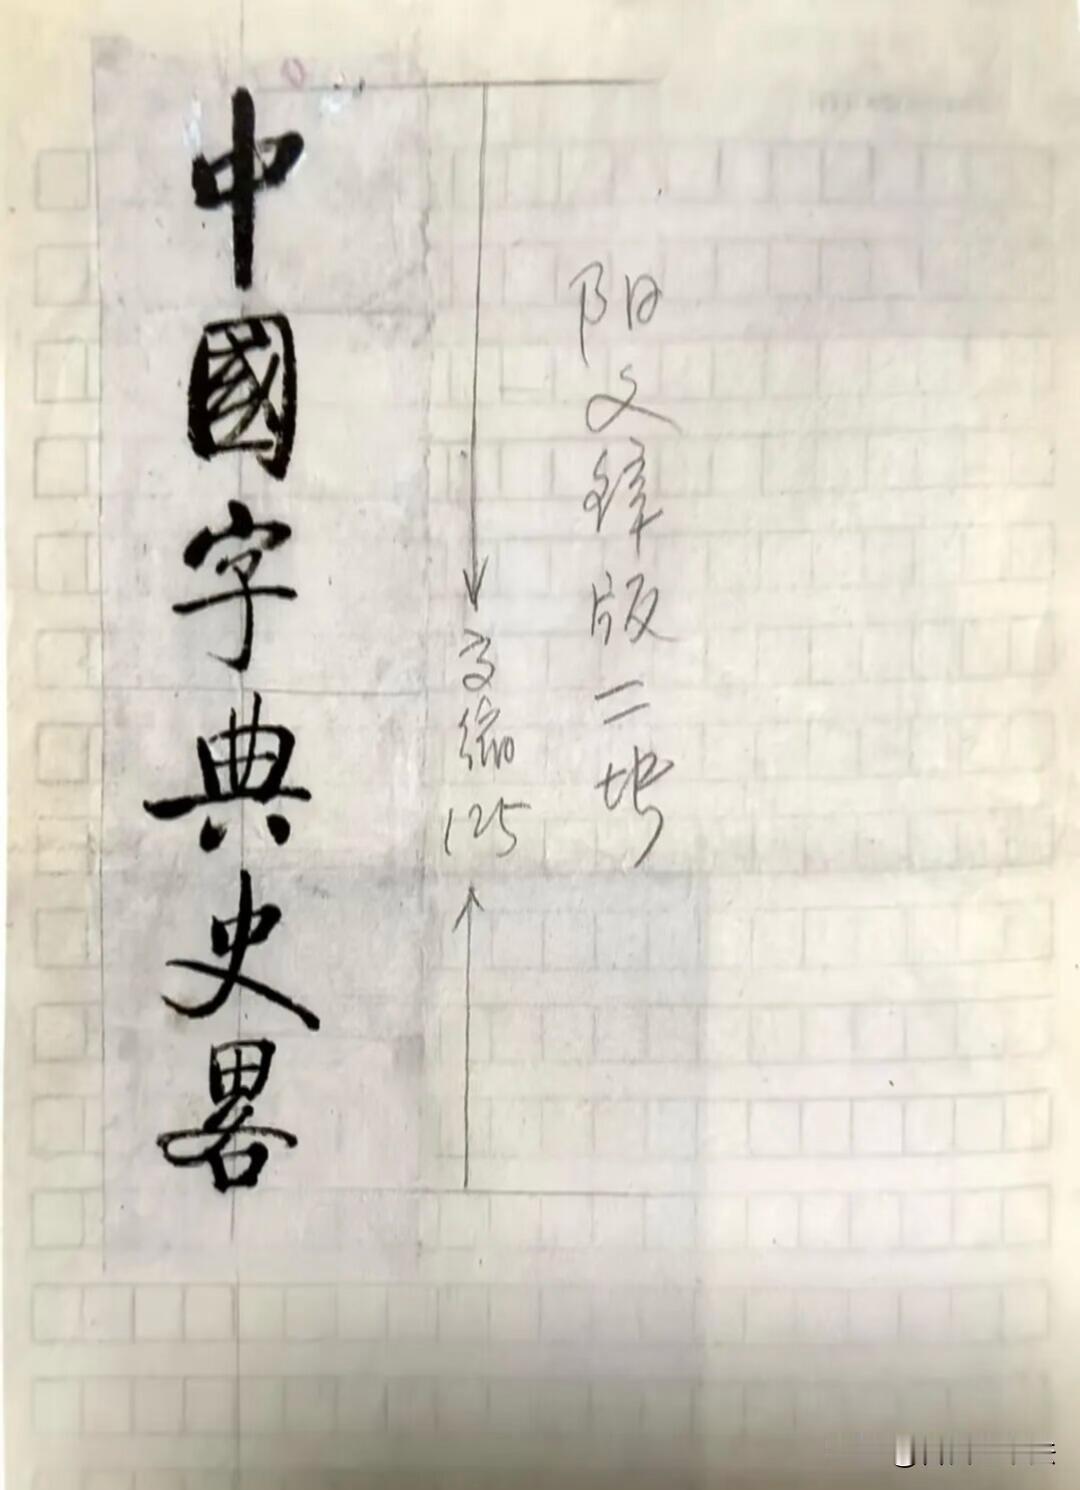 中國字典史畧
高缩125
阳文锌版二块